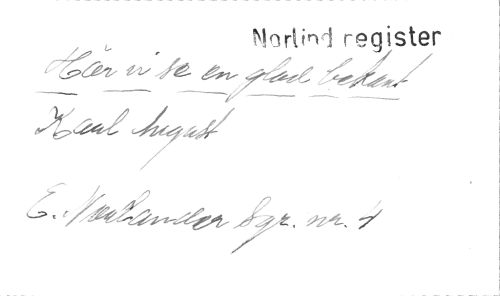 Norlind register
Här vi se en glad bekant
Karl August
E. Norlander Sgr. nr. 1